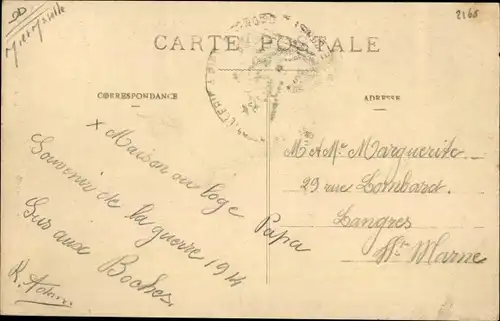 DD
M et Moselle
2165
CARTE POSTALE
CORRESPONDANCE
ADRESSE
x Maison ou loge Papa
Souvenir de la guerre 1914
Sus aux Boches
R. Adam
M et Me Marguerite
29 rue Lombard.
Langres
Hte Marne